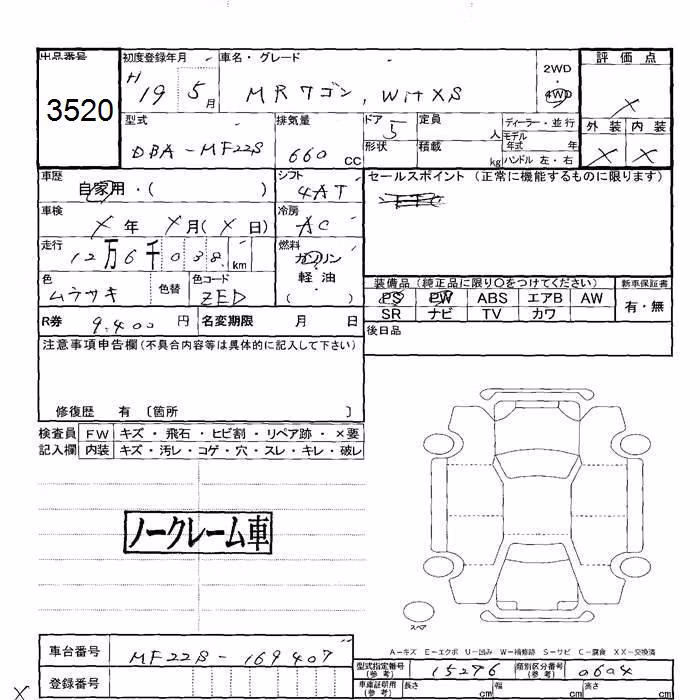 出品番号
3520
初度登録年月
H 19 5月
車名・グレード
MRワゴン, Wit XS
2WD
・
4WD
評価点
X
外装 内装
X X
型式
DBA-MF22S
排気量
660 CC
ドア
5
形状
定員
人
積載
kg
ディーラー・並行
モデル年式 年
ハンドル 左・右
車歴
自家用・( )
シフト
4AT
セールスポイント (正常に機能するものに限ります)
車検
X年 X月 (X日)
冷房
AC
走行
12万6千038km
燃料
ガソリン
軽・油
( )
色
ムラサキ
色替
色コード
ZED
R券 9,400円
名変期限 月 日
装備品 (純正品に限り〇をつけてください)
PS PW ABS エアB AW
SR ナビ TV カワ
新車保証書
有・無
後日品
注意事項申告欄 (不具合内容等は具体的に記入して下さい)
修復歴 有 〔箇所 〕
検査員記入欄
FW キズ・飛石・ヒビ割・リペア跡・×要
内装 キズ・汚レ・コゲ・穴・スレ・キレ・破レ
ノークレーム車
スペア
A-キズ E-エクボ U-凹み W-補修跡 S-サビ C-腐食 XX-交換済
車台番号 MF22S-169407
登録番号
型式指定番号(参考) 15276
類別区分番号(参考) 0604
車庫証明用(参考) 長さ cm 幅 cm 高さ cm
X